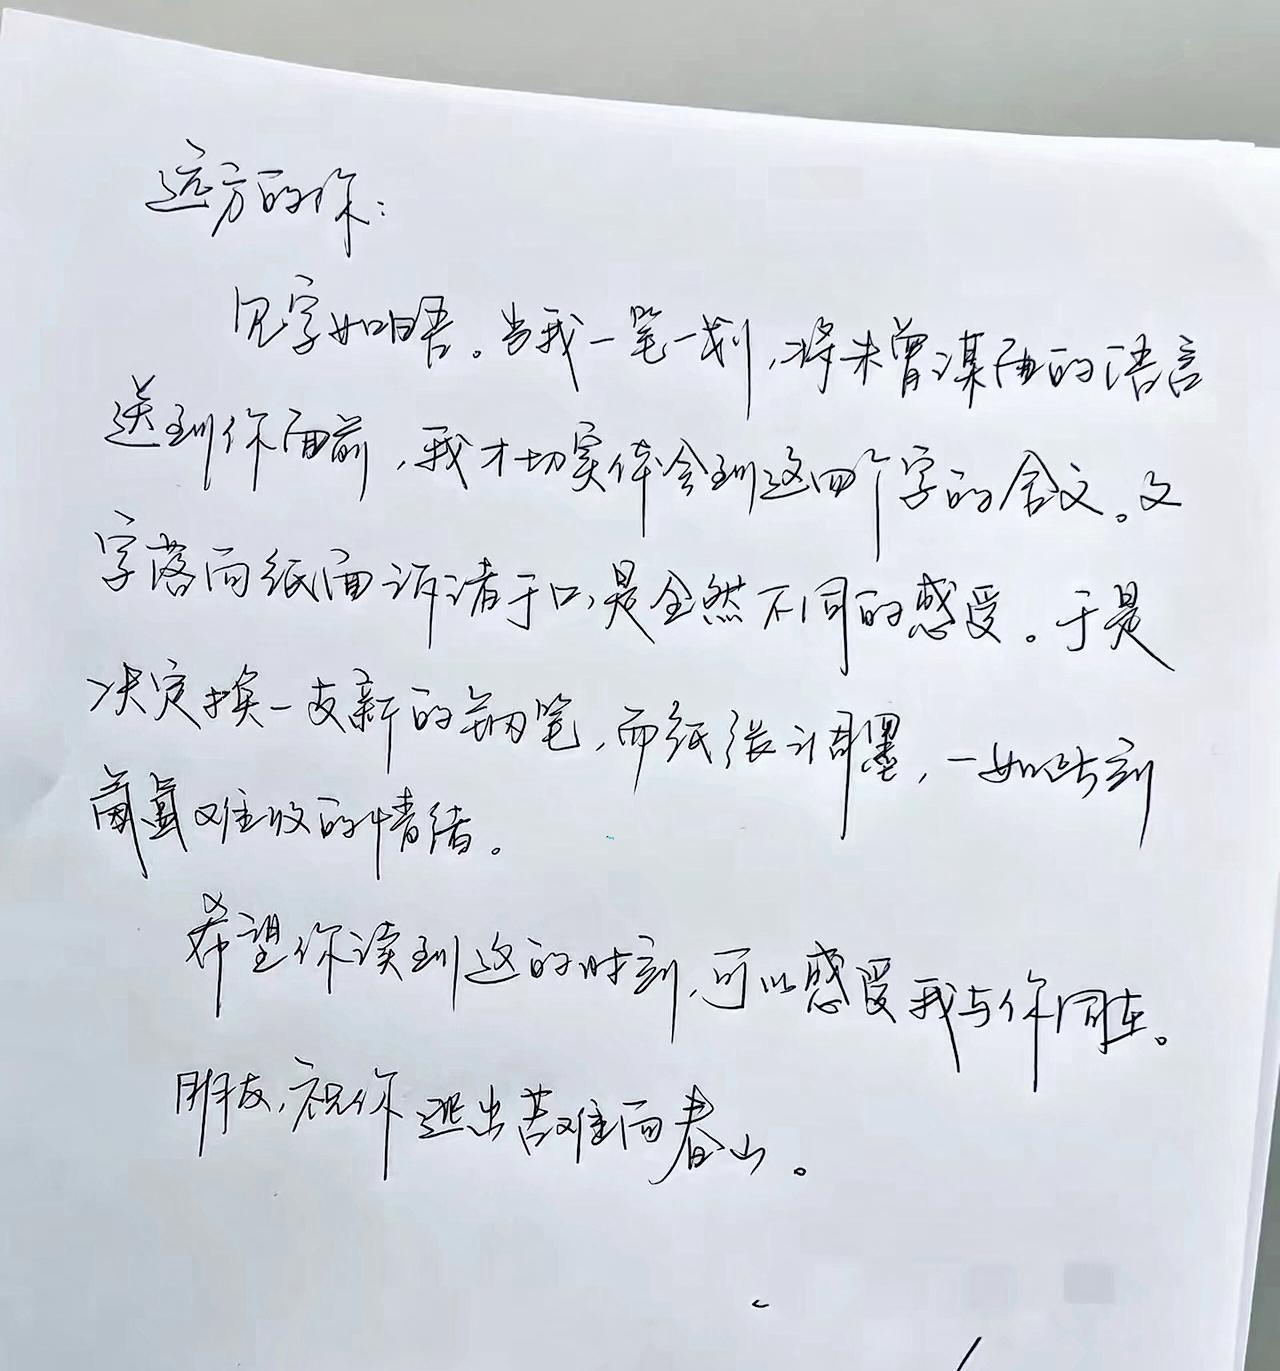 远方的你：
见字如晤。当我一笔一划，将未曾谋面的语言
送到你面前，我才切实体会到这四个字的含义。文
字落向纸面诉诸于口，是全然不同的感受。于是
决定换一支新的钢笔，而纸张调墨，一如此刻
难收的情绪。
希望你读到这的时刻，可以感受我与你同在。
朋友，祝你逃出苦难向春山。